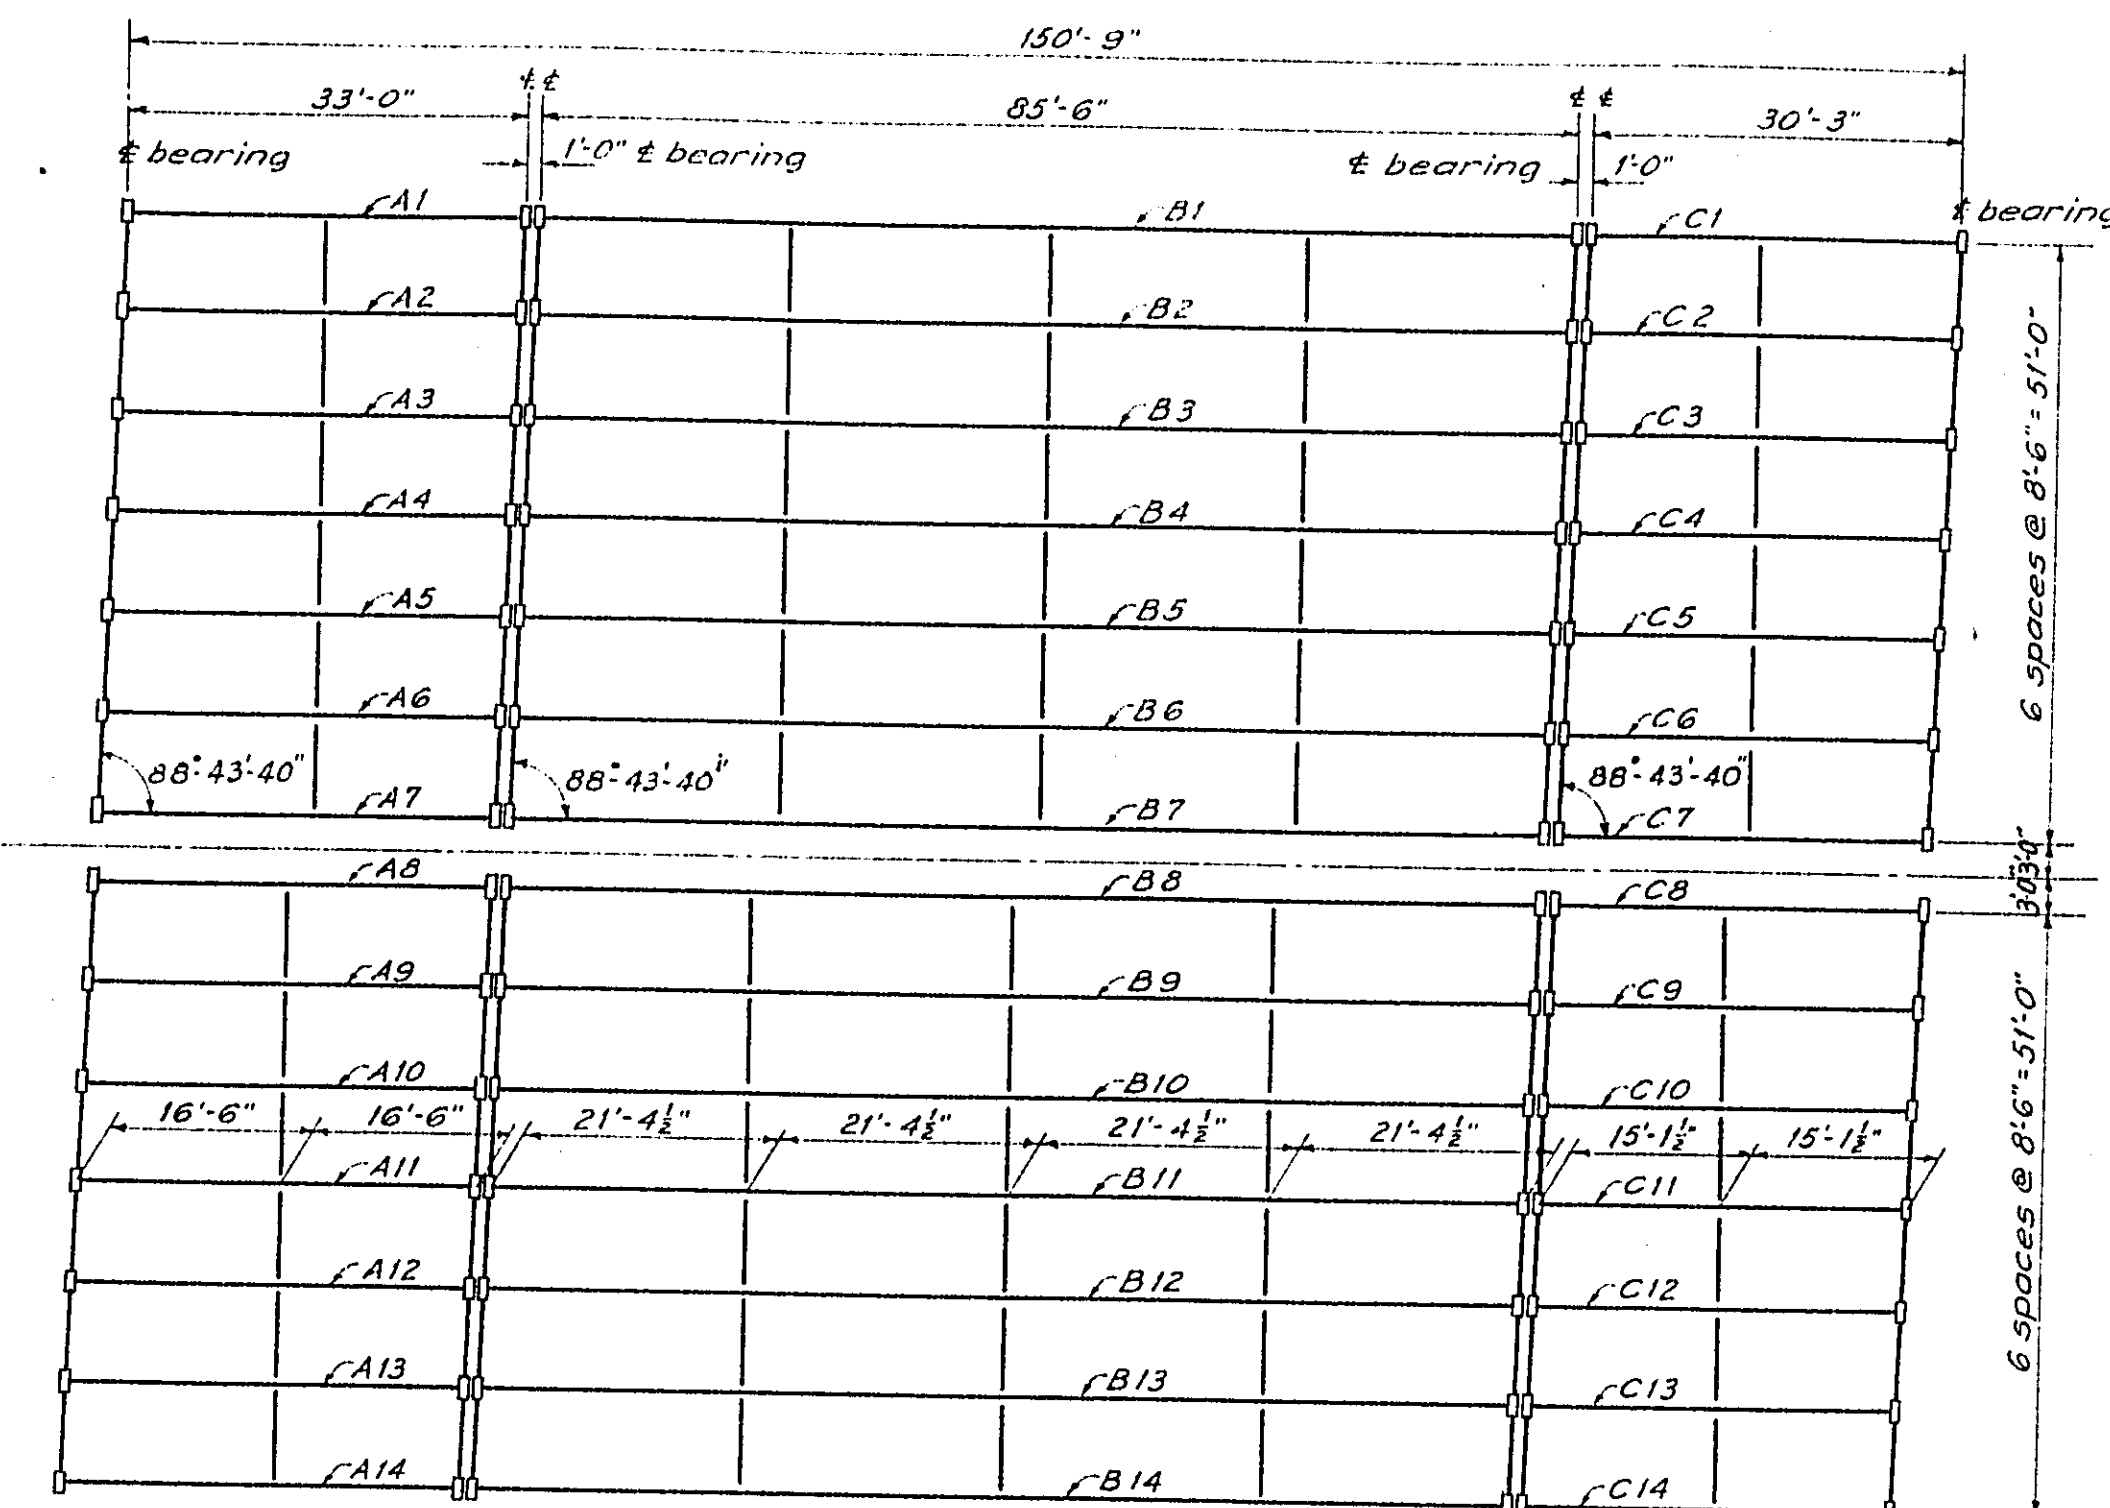 150'-9"
33'-0" ℄ ℄ 85'-6" ℄ ℄ 30'-3"
℄ bearing 1'-0" ℄ bearing ℄ bearing 1'-0"
℄ bearing
A1 B1 C1
A2 B2 C2
A3 B3 C3
A4 B4 C4
A5 B5 C5
A6 B6 C6
88°-43'-40" 88°-43'-40" 88°-43'-40"
A7 B7 C7
6 spaces @ 8'-6" = 51'-0"
3'-0"
3'-0"
A8 B8 C8
A9 B9 C9
A10 B10 C10
16'-6" 16'-6" 21'-4½" 21'-4½" 21'-4½" 21'-4½" 15'-1½" 15'-1½"
A11 B11 C11
A12 B12 C12
A13 B13 C13
A14 B14 C14
6 spaces @ 8'-6" = 51'-0"